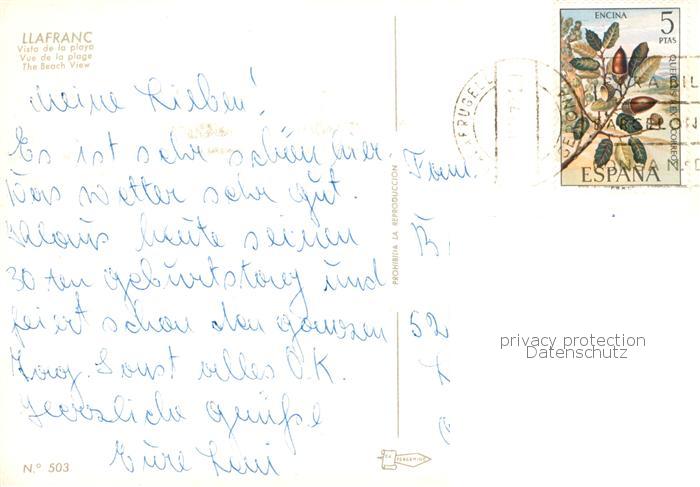 LLAFRANC
Vista de la playa
Vue de la plage
The Beach View
Meine Lieben!
Es ist sehr schön hier.
Das Wetter sehr gut.
heute seinen
30 ten Geburtstag und
feiert schon den ganzen
Tag. Sonst alles O.K.
Herzliche Grüße
Eure
N.º 503
PROHIBIDA LA REPRODUCCION
Fam.
B
52
ENCINA
5
PTAS
CORREOS
ESPAÑA
privacy protection
Datenschutz